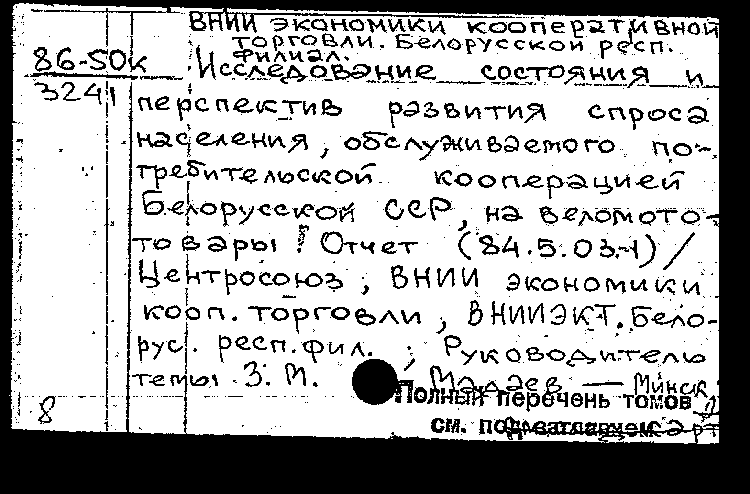 ВНИИ экономики кооперативной
торговли. Белорусской респ.
филиал.
86-50к
Исследование состояния и
3241
перспектив развития спроса
населения, обслуживаемого по-
требительской кооперацией
Белорусской ССР, на веломото-
товары: Отчет (84.5.03.-1) /
Центросоюз, ВНИИ экономики
кооп. торговли, ВНИИЭКТ. Бело-
рус. респ. фил. ; Руководитель
темы З. М. Мадаев — Минск
Полный перечень томов
8
см. под